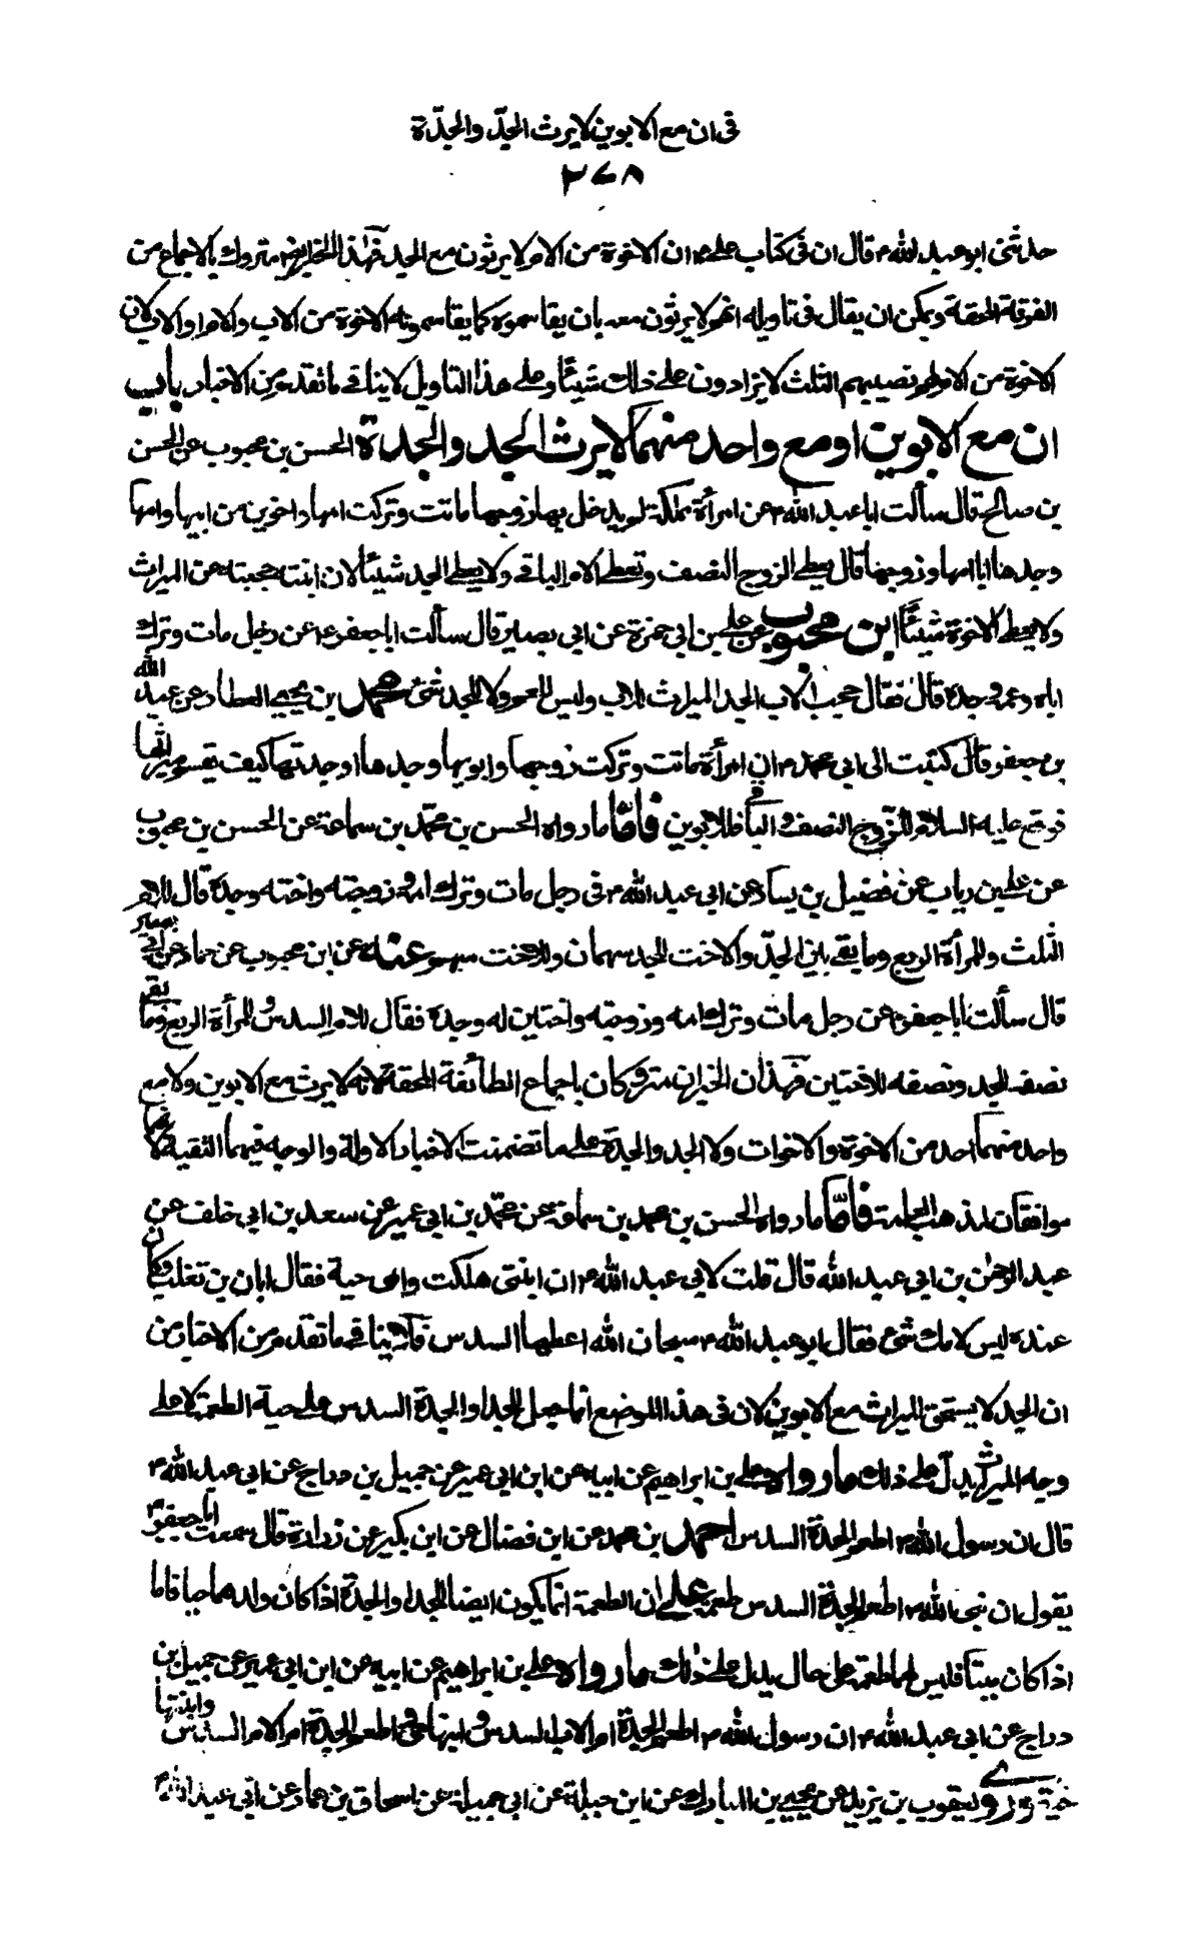 فى ان مع الابوين لا يرث الجدّ والجدّة
٢٦٨
حدثنى ابو عبد الله ع قال ان فى كتاب على ع ان الاخوة من الام لا يرثون مع الجد فهذا الخبر ايضا متروك بالاجماع من
الفرقة المحقة ويمكن ان يقال فى تاويله انهم لا يرثون معه بان يقاسموه كما يقاسمونه الاخوة من الاب والام او الاب لان
الاخوة من الام لهم نصيبهم الثلث لا يزادون على ذلك شيئا وعلى هذا التاويل لا ينافى ما تقدم من الاخبار باب
ان مع الابوين او مع واحد منهما لا يرث الجد والجدة الحسن بن محبوب عن الحسن
بن صالح قال سألت ابا عبد الله ع عن امرأة مملكة لم يدخل بها زوجها ماتت وتركت امها واخوين من ابيها وامها
وجدها ابا امها وزوجها قال يعطى الزوج النصف وتعطى الام الباقى ولا يعطى الجد شيئا لان ابنته حجبته عن الميراث
ولا يعطى الاخوة شيئا ابن محبوب عن على بن ابى حمزة عن ابى بصير قال سألت ابا جعفر ع عن رجل مات وترك
اباه وعمه وجده قال فقال حجب الاب الجد الميراث للاب وليس للعم ولا للجد شئ محمد بن يحيى العطار عن عبد الله
بن جعفر قال كتبت الى ابى محمد ع ان امرأة ماتت وتركت زوجها وابويها وجدها او جدتها كيف يقسم ميراثها
فوقع عليه السلام للزوج النصف والباقى للابوين فامّا ما رواه الحسن بن محمّد بن سماعة عن الحسن بن محبوب
عن على بن رياب عن فضيل بن يسار عن ابى عبد الله ع فى رجل مات وترك امه وزوجته واخته وجده قال للام
الثلث وللمرأة الربع وما بقى بين الجدّ والاخت للجد سهمان وللاخت سهم وعنه عن ابن محبوب عن حماد عن ابى بصير
قال سألت ابا جعفر ع عن رجل مات وترك امه وزوجته واختين له وجده فقال للام السدس وللمرأة الربع وما بقى
نصفه للجد ونصفه للاختين فهذان الخبران متروكان باجماع الطائفة المحقة لانه لا يرث مع الابوين ولا مع
واحد منهما احد من الاخوة والاخوات ولا الجد والجدة على ما تضمنت الاخبار الاولة والوجه فيهما التقية لانهما
موافقان لمذهب العامة فامّا ما رواه الحسن بن محمد بن سماعة عن محمّد بن ابى عمير عن سعد بن ابى خلف عن
عبد الرحمن بن ابى عبد الله قال قلت لابى عبد الله ع ان ابنتى هلكت وامى حية فقال ابان بن تغلب وكان
عنده ليس لامك شئ فقال ابو عبد الله ع سبحان الله اعطها السدس فلا ينافى ما تقدم من الاخبار من
ان الجد لا يستحق الميراث مع الابوين لان فى هذا الموضع انما جعل للجد او الجدة السدس على جهة الطعمة لا على
وجه الميراث يدلّ على ذلك ما رواه على بن ابراهيم عن ابيه عن ابن ابى عمير عن جميل بن دراج عن ابى عبد الله ع
قال ان رسول الله ص اطعم الجدة السدس احمد بن محمد عن ابن فضال عن ابن بكير عن زرارة قال سمعت ابا جعفر ع
يقول ان نبى الله ص اطعم الجدة السدس طعمة على ان الطعمة انما يكون ايضا للجد او الجدة اذا كان ولدهما حيا فاما
اذا كان ميتا فليس لهما طعمة على حال يدل على ذلك ما رواه على بن ابراهيم عن ابيه عن ابن ابى عمير عن جميل بن
دراج عن ابى عبد الله ع ان رسول الله ص اطعم الجدة ام الاب السدس وابنها حى واطعم الجدة ام الام السدس وابنتها
حية وروى يعقوب بن يزيد عن يحيى بن المبارك عن ابن جبلة عن ابى جميلة عن اسحاق بن عمار عن ابى عبد الله ع